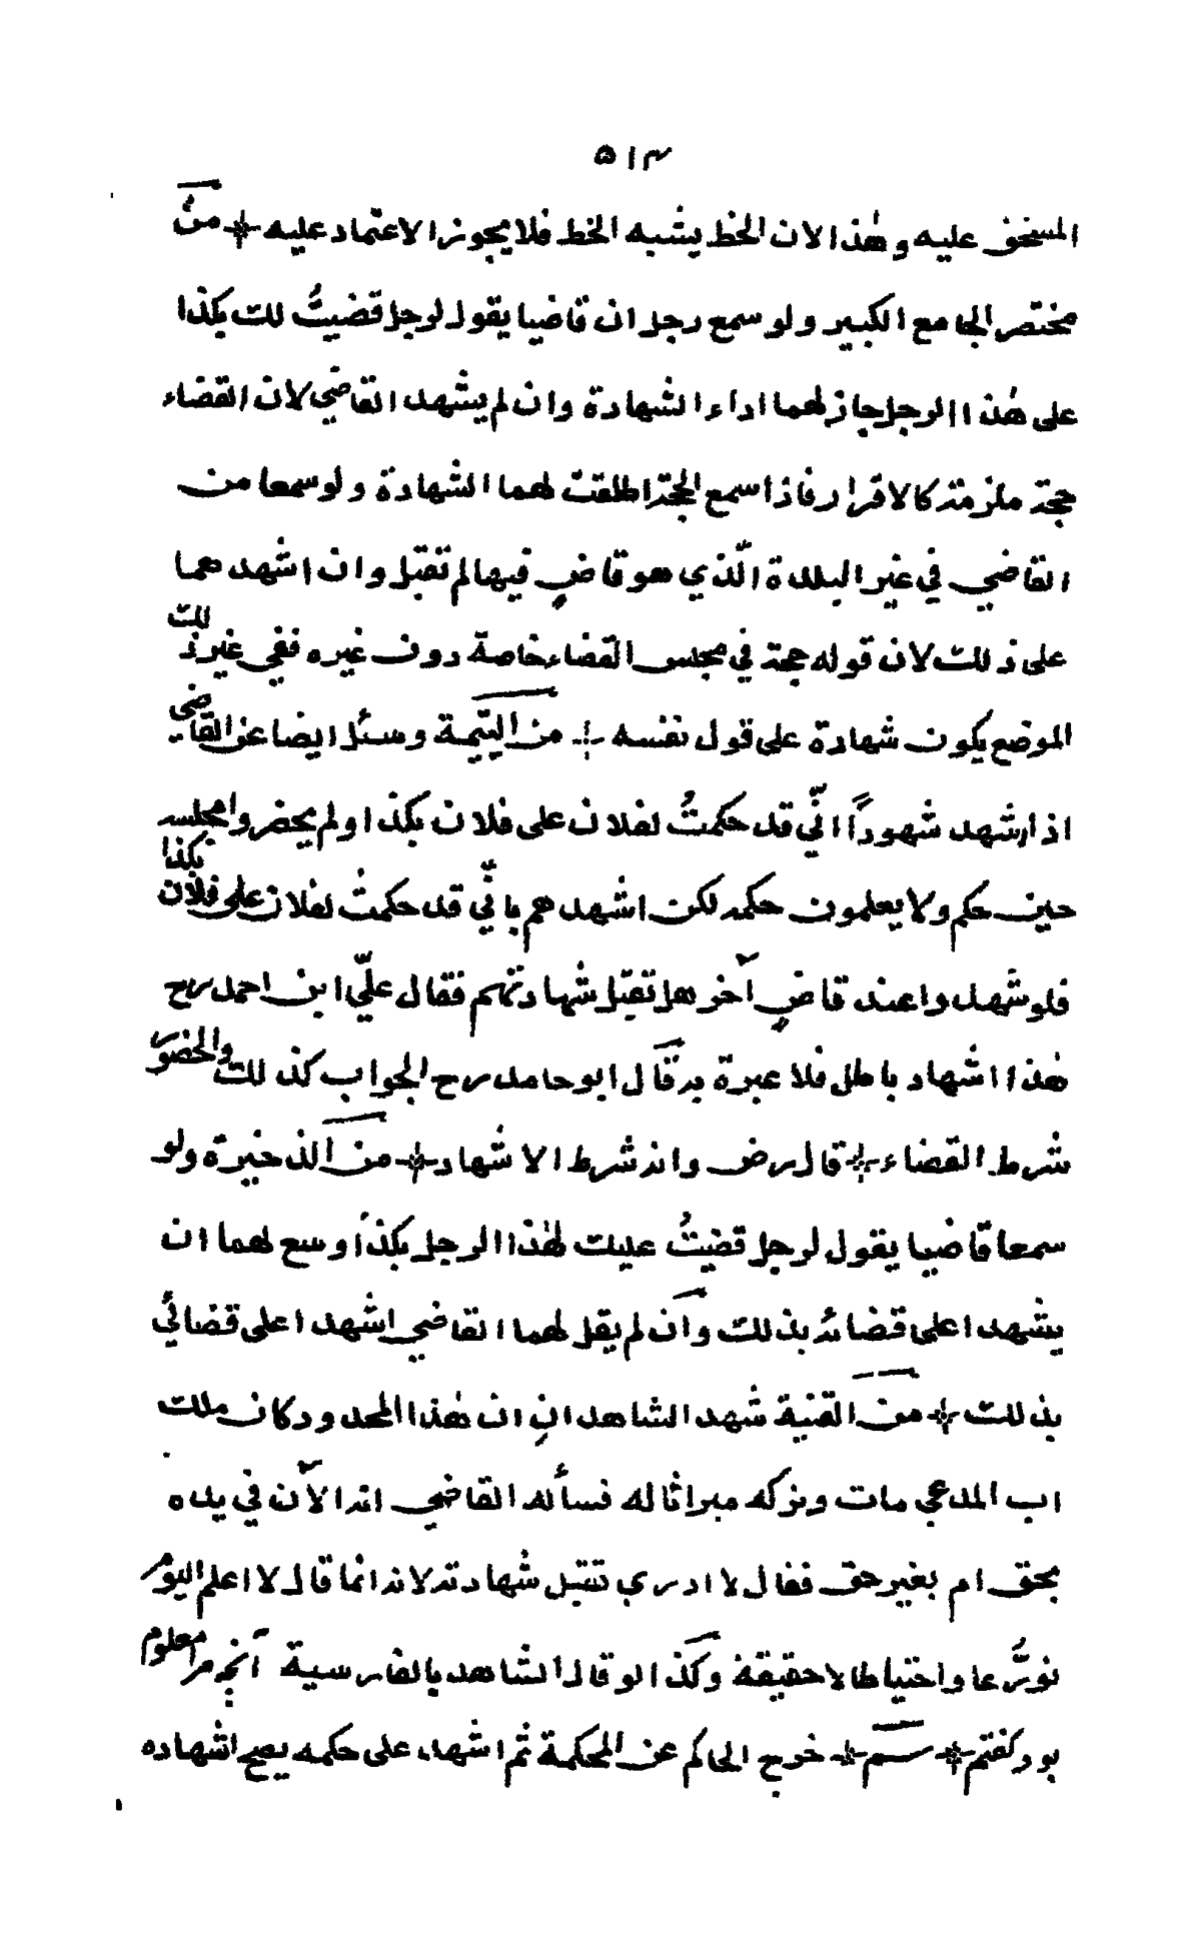 ۵۱۴
المستحق عليه وهٰذا لان الخط يشبه الخط فلا يجوز الاعتماد عليه * من
مختصر الجامع الكبير ولو سمع رجل ان قاضيا يقول لرجل قضيتُ لك بكذا
على هٰذا الرجل جاز لهما اداء الشهادة وان لم يشهد القاضي لان القضاء
حجة ملزمة كالاقرار فاذا سمع الحجة اطلقت لهما الشهادة ولو سمعا من
القاضي في غير البلدة الّذي هو قاضٍ فيها لم تقبل وان اشهدهما
على ذلك لان قوله حجة في مجلس القضاء خاصة دون غيره ففي غير ذلك
الموضع يكون شهادة على قول نفسه * من اليتيمة وسئل ايضا عن القاضي
اذا اشهد شهوداً انّي قد حكمتُ لفلان على فلان بكذا ولم يحضروا مجلسه
حين حكم ولا يعلمون حكمه لكن اشهدهم باني قد حكمتُ لفلان على فلان بكذا
فلو شهدوا عند قاضٍ آخر هل تقبل شهادتهم فقال عليّ ابن احمد رح
هٰذا اشهاد باطل فلا عبرة به قال ابو حامد رح الجواب كذلك والحضور
شرط القضاء * قال رض وانه شرط الاشهاد * من الذخيرة ولو
سمعا قاضيا يقول لرجل قضيتُ عليك لهٰذا الرجل بكذا وسع لهما ان
يشهدا على قضائه بذلك وان لم يقل لهما القاضي اشهدا على قضائي
بذلك * من القنية شهد الشاهدانِ ان هٰذا المحدود كان ملك
اب المدعي مات وتركه ميراثا له فسأله القاضي انه الآن في يده
بحق ام بغير حق فقال لا ادري تقبل شهادته لانه انما قال لا اعلم اليوم
تورُّعا واحتياطا لا حقيقة وكذا لو قال الشاهد بالفارسية آنچه مرا معلوم
بود گفتم * سم * خرج الحاكم عن المحكمة ثم اشهد على حكمه يصح اشهاده